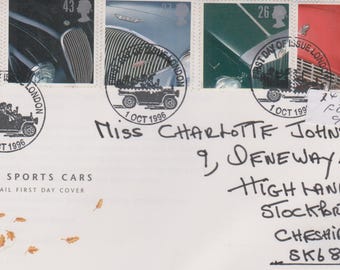 43
63
26
LONDON
1 OCT 1996
FIRST DAY OF ISSUE LONDON
1 OCT 1996
FIRST DAY OF ISSUE LONDON
1 OCT 1996
MISS CHARLOTTE JOHNS
9, DENEWAY
HIGHLAN
STOCKPO
CHESHIR
SK68
SPORTS CARS
AIL FIRST DAY COVER